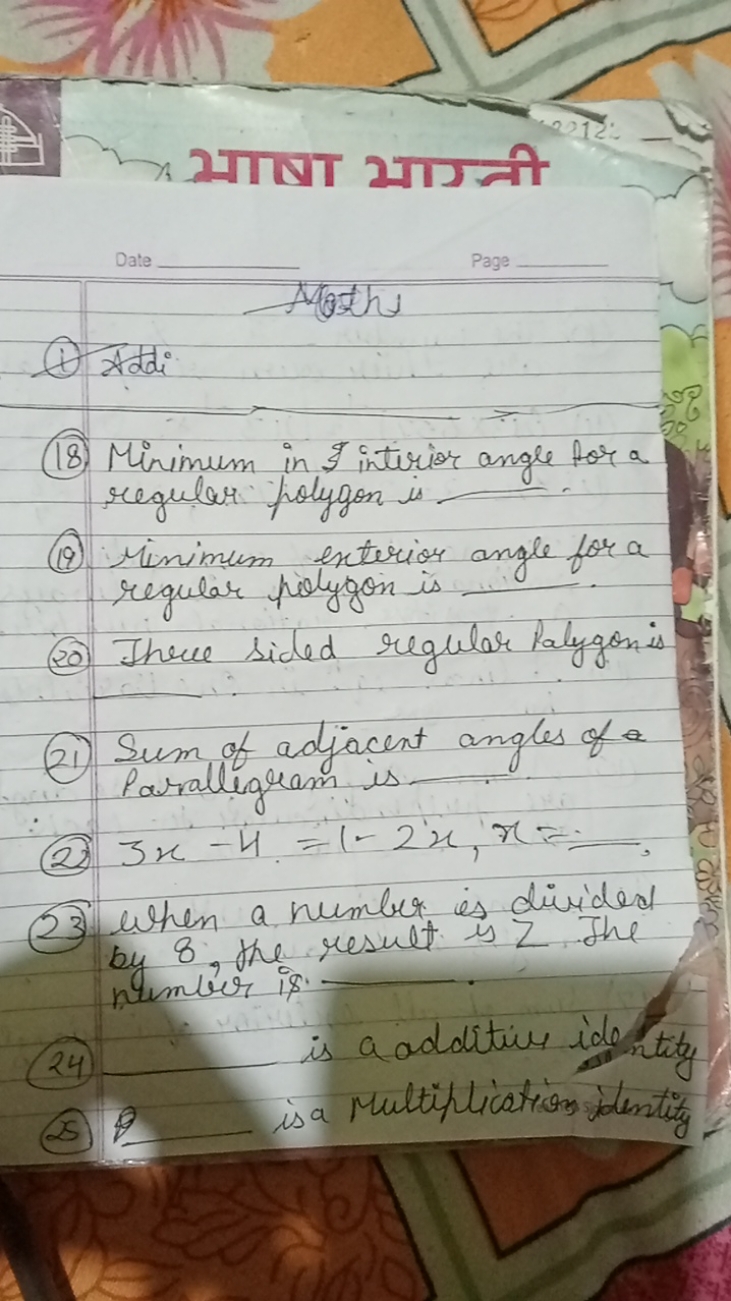 भाषा भारती
Date
Page
Maths
① Addi
⑱ Minimum in interior angle for a
regular polygon is ______.
⑲ Minimum exterior angle for a
regular polygon is ______.
⑳ Three sided regular Palygon is
______
㉑ Sum of adjacent angles of a
Parallegram is ______
㉒ 3x - 4 = 1 - 2x, x = ___,
㉓ When a number is divided
by 8, the result is 2 The
number is ______.
㉔ ______ is a additive identity
㉕ ______ is a Multiplication identity